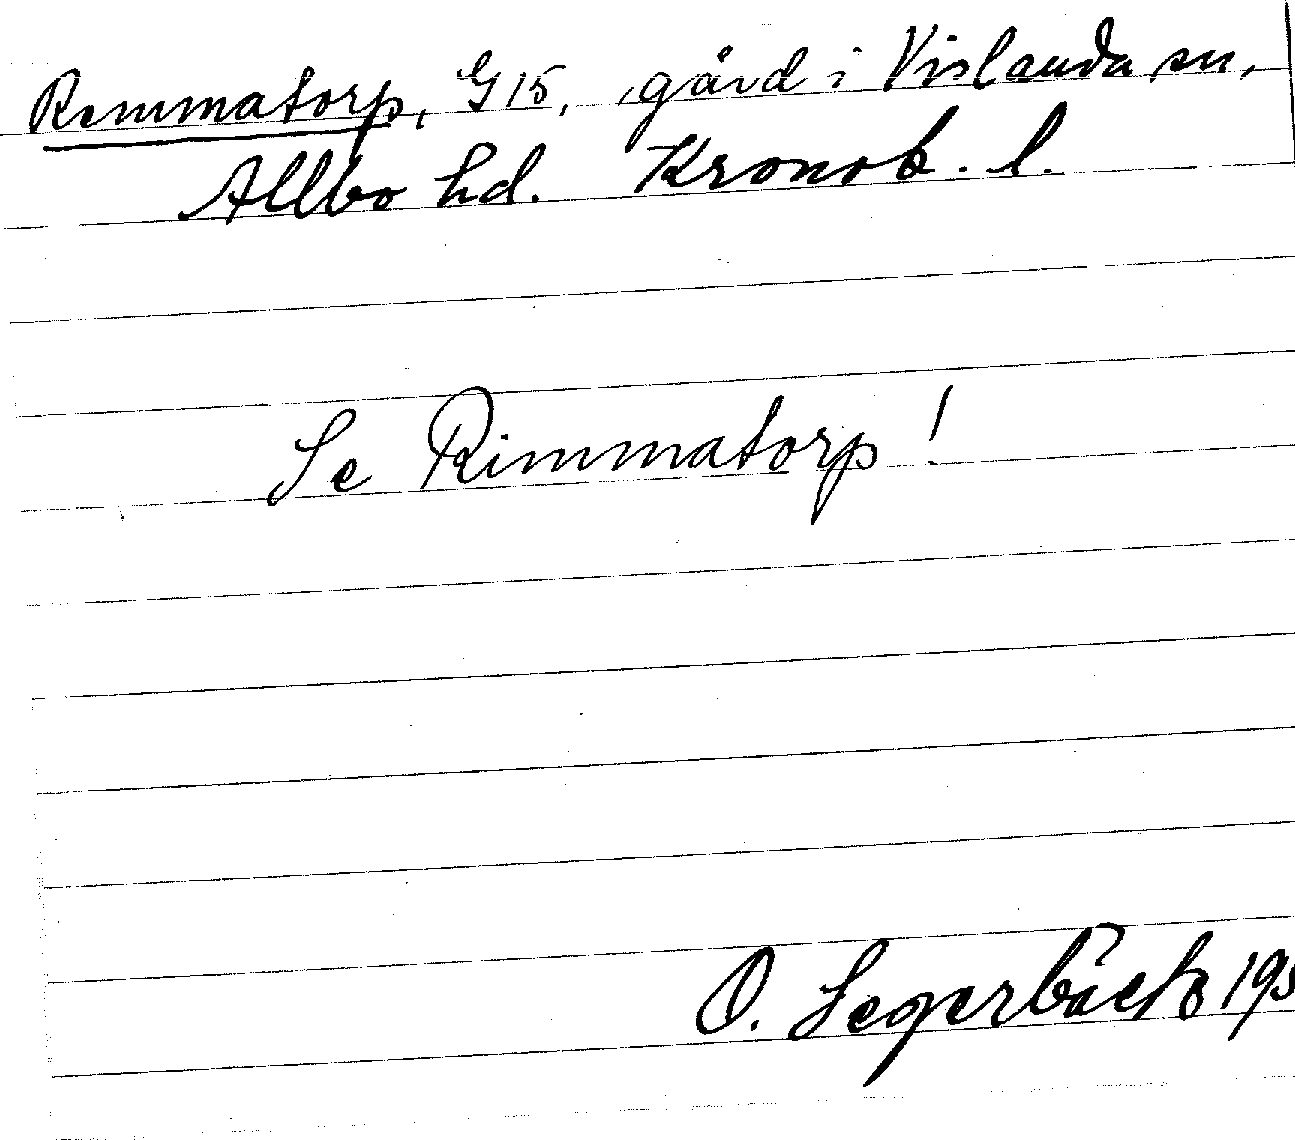 Remmatorp, G 15, gård i Vislanda sn,
Allbo hd. Kronob. l.
Se Rimmatorp!
O. Segerbäck 195